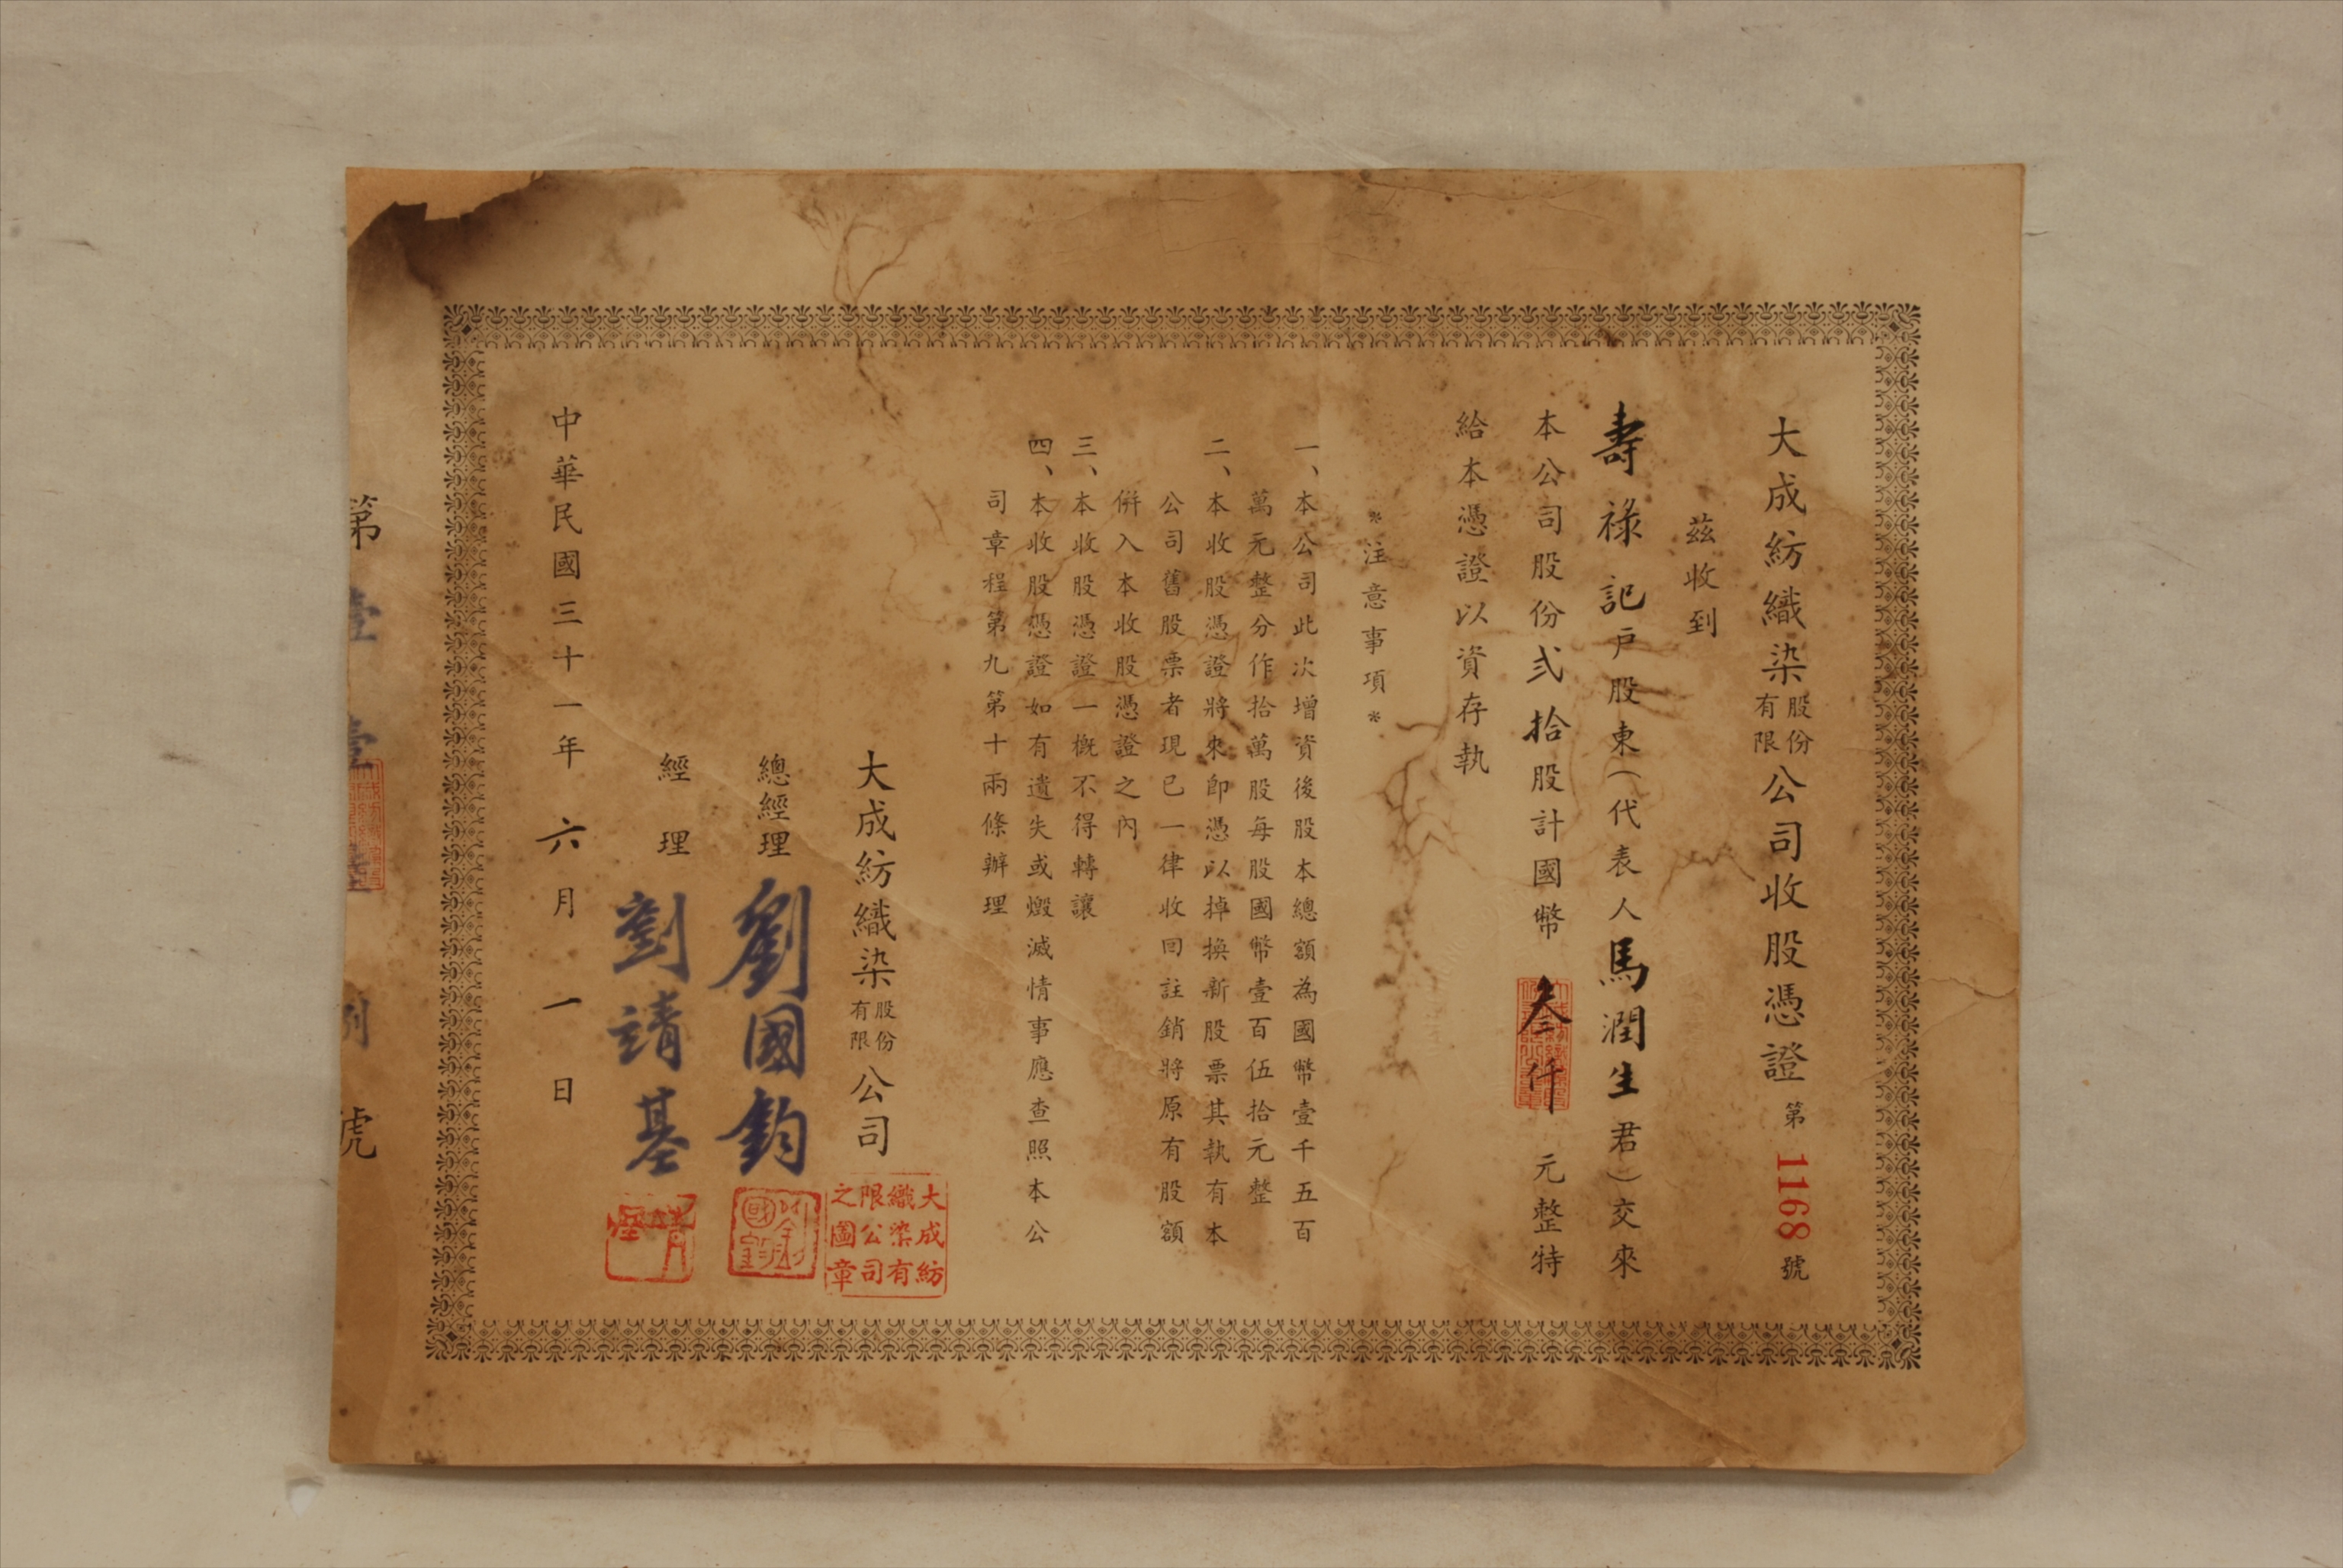 大成紡織染股份有限公司收股憑證第1168號
茲收到
壽祿記戶股東（代表人馬潤生君）交來
本公司股份弍拾股計國幣叁仟元整特
給本憑證以資存執
*注意事項*
一、本公司此次增資後股本總額為國幣壹千五百
萬元整分作拾萬股每股國幣壹百伍拾元整
二、本收股憑證將來即憑以掉換新股票其執有本
公司舊股票者現已一律收回註銷將原有股額
併入本收股憑證之內
三、本收股憑證一概不得轉讓
四、本收股憑證如有遺失或燬滅情事應查照本公
司章程第九第十兩條辦理
大成紡織染股份有限公司
大成紡織染有限公司之圖章
總經理 劉國鈞
經理 劉靖基
中華民國三十一年六月一日
第壹壹陸捌號